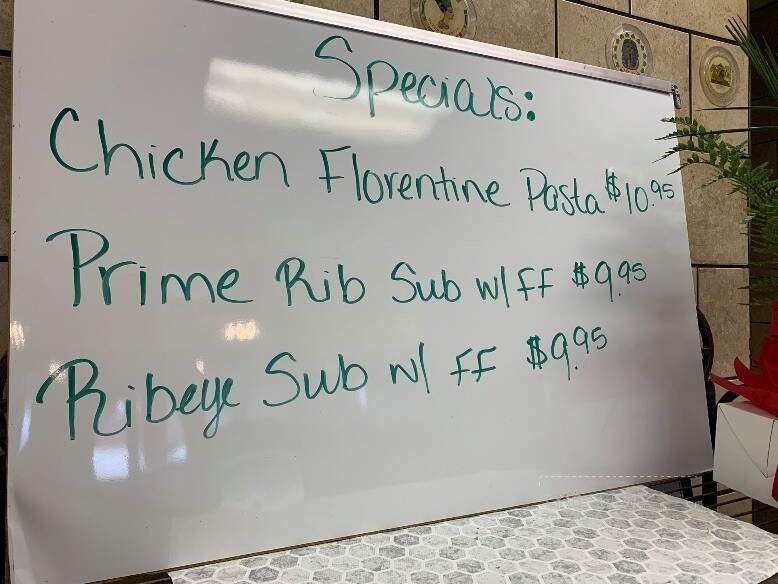 Specials:
Chicken Florentine Pasta $10.95
Prime Rib Sub w/ FF $9.95
Ribeye Sub w/ FF $9.95